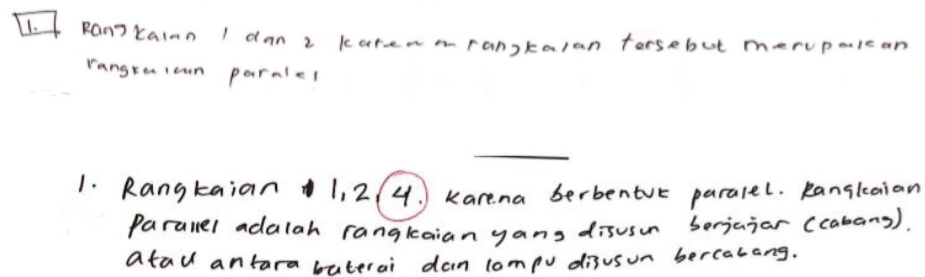 1. Rangkaian 1 dan 2 karena rangkaian tersebut merupakan
rangkaian paralel
1. Rangkaian 1,2,4. karena berbentuk paralel. Rangkaian
Paralel adalah rangkaian yang disusun berjajar (cabang).
atau antara baterai dan lampu disusun bercabang.